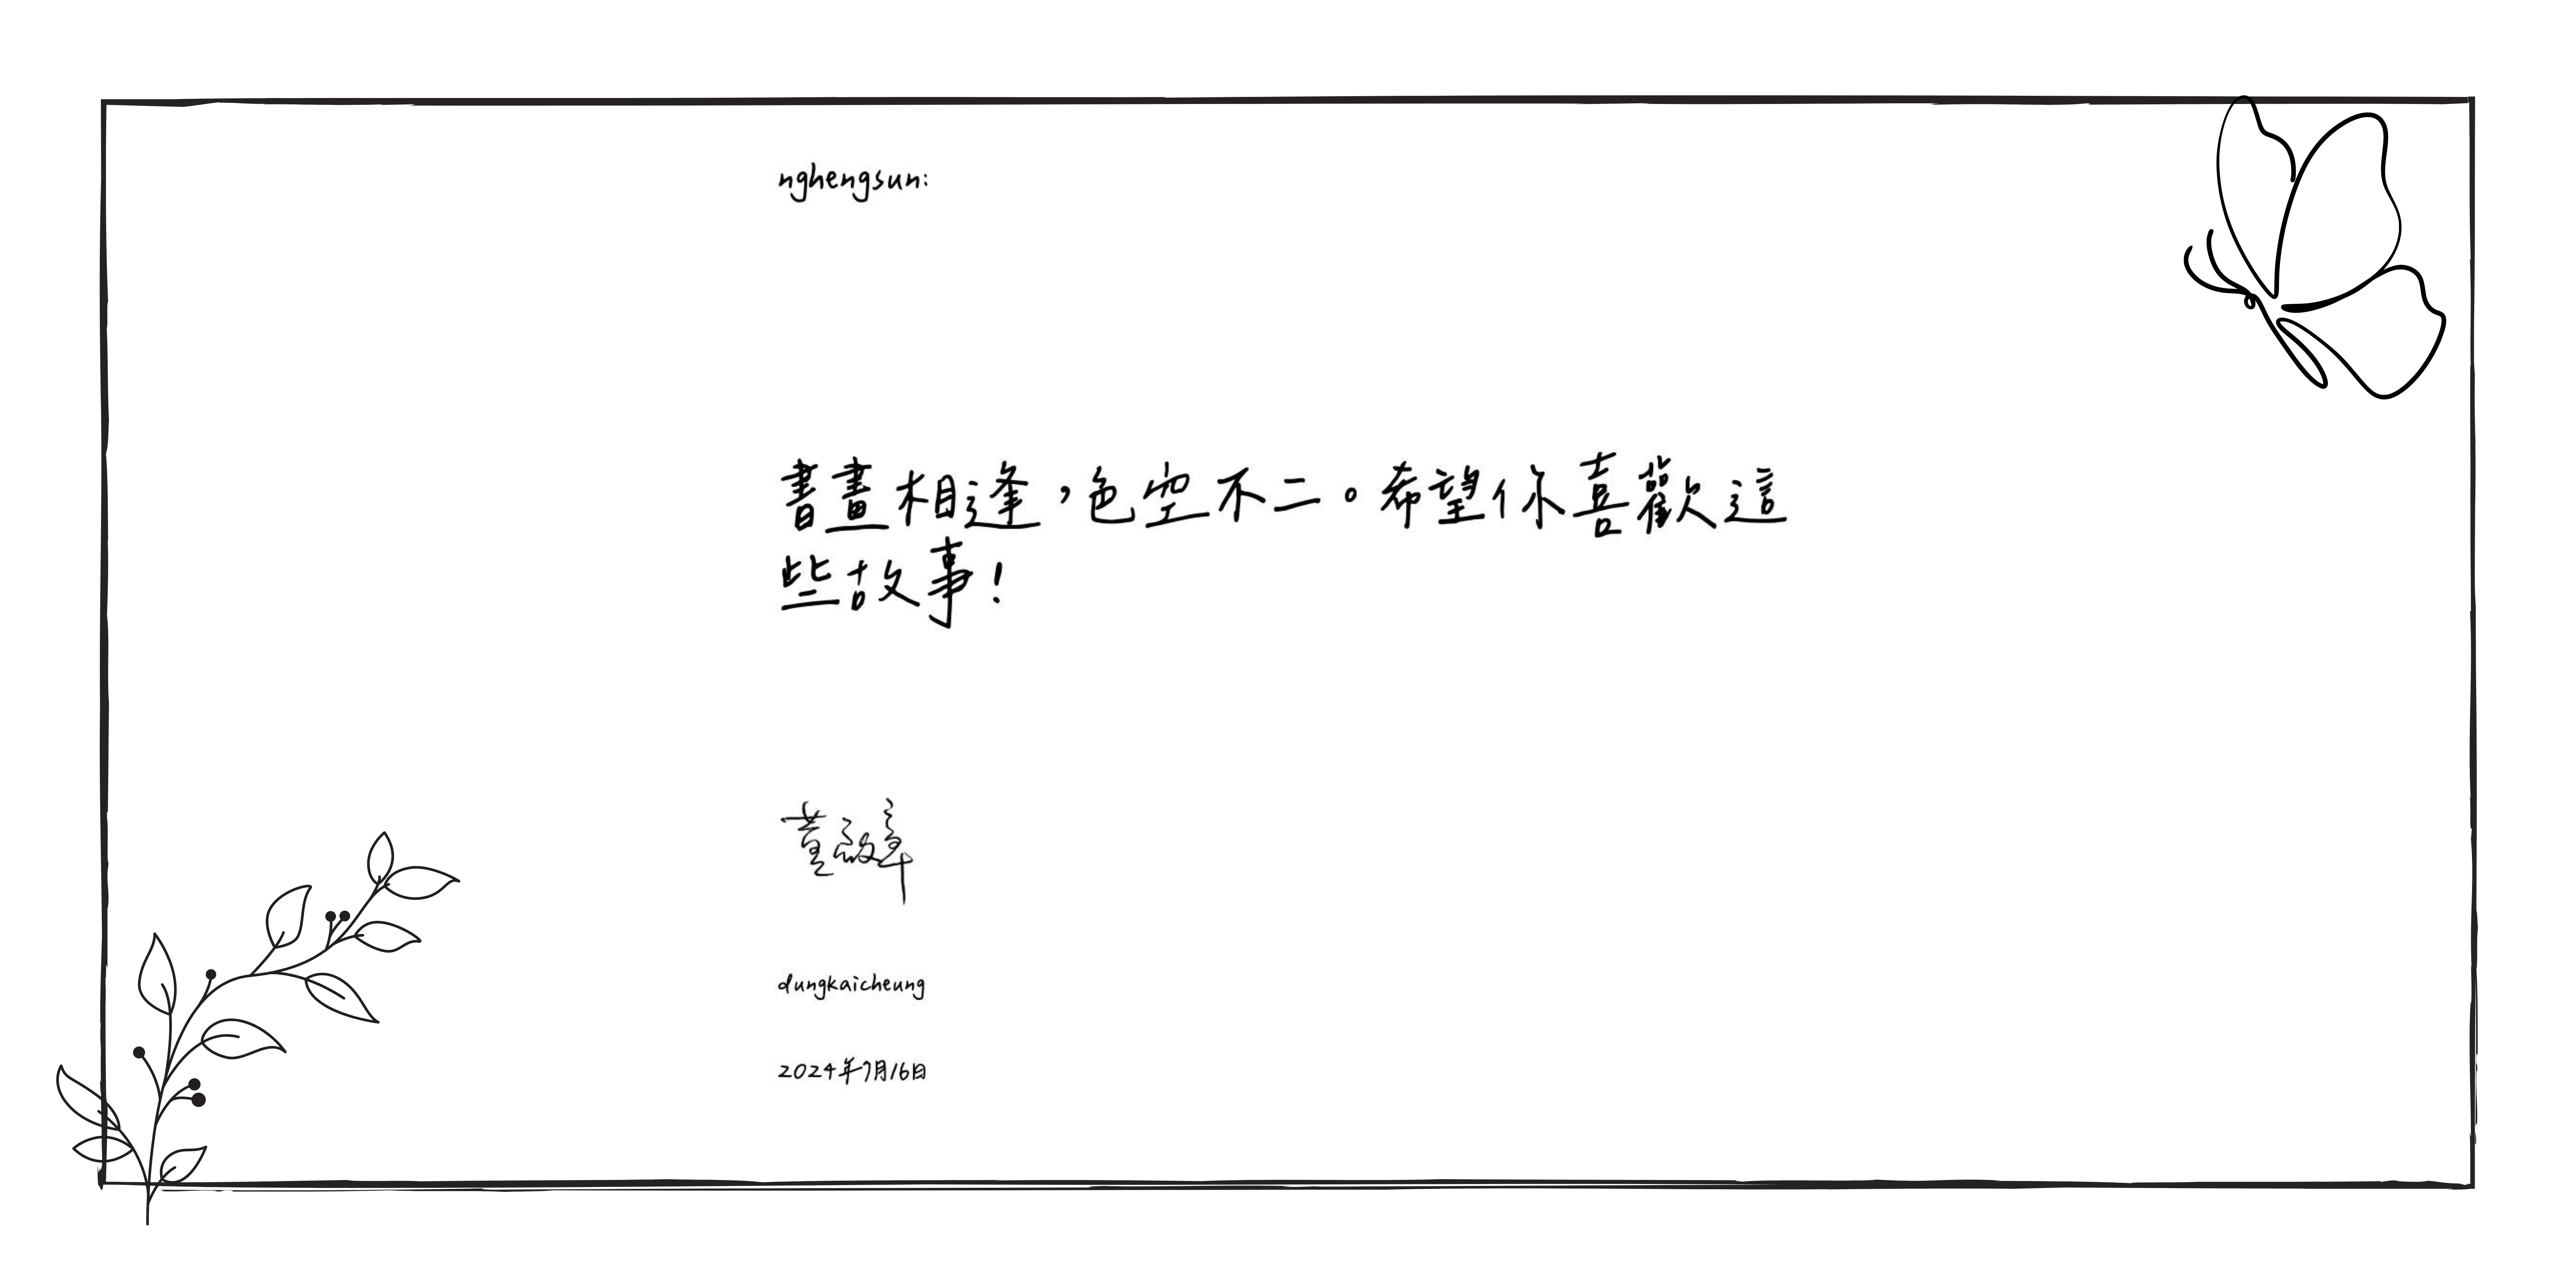 nghengsun:
書畫相逢，色空不二。希望你喜歡這
些故事！
董啟章
dungkaicheung
2024年7月16日